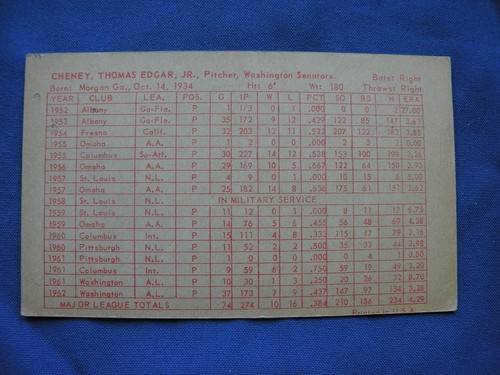 CHENEY, THOMAS EDGAR, JR., Pitcher, Washington Senators Bats: Right
Born: Morgan Ga., Oct. 14, 1934 Ht: 6' Wt: 180 Throws: Right
YEAR CLUB LEA. POS. G IP W L PCT. SO BB H ERA
1952 Albany Ga-Fla. P 1 1/3 0 0 .000 0 0 2 27.00
1953 Albany Ga-Fla. P 35 172 9 12 .429 122 85 3.61
1954 Fresno Calif. P 32 203 12 11 .522 207 122 3.85
1955 Omaha A.A. P 1 2 0 0 .000 0 3
1955 Columbus So-Atl. P 30 227 14 12 .538 153 100 199
1956 Omaha A.A. P 29 169 10 5 .667 122 64 150
1957 St. Louis N.L. P 4 9 0 1 .000 10 15 5.00
1957 Omaha A.A. P 25 182 14 8 .636 175 61 3.62
1958 St. Louis IN MILITARY SERVICE
1959 St. Louis N.L. P 11 12 0 1 .000 8 11 17 6.75
1959 Omaha A.A. P 14 76 5 6 .455 56 48 69 4.38
1960 Columbus Int. P 15 111 4 8 .333 115 47 3.26
1960 Pittsburgh N.L. P 11 52 2 2 .500 35 33 44 3.98
1961 Pittsburgh N.L. P 1 0 0 0 .000 0 4 1 0.00
1961 Columbus Int. P 9 59 6 2 .750 59 19 49 3.20
1961 Washington A.L. P 10 30 1 3 .250 20 26
1962 Washington A.L. P 37 173 7 9 .437 147 97 3.28
MAJOR LEAGUE TOTALS 74 274 10 16 .384 210 186 234 4.29
Printed in U.S.A.